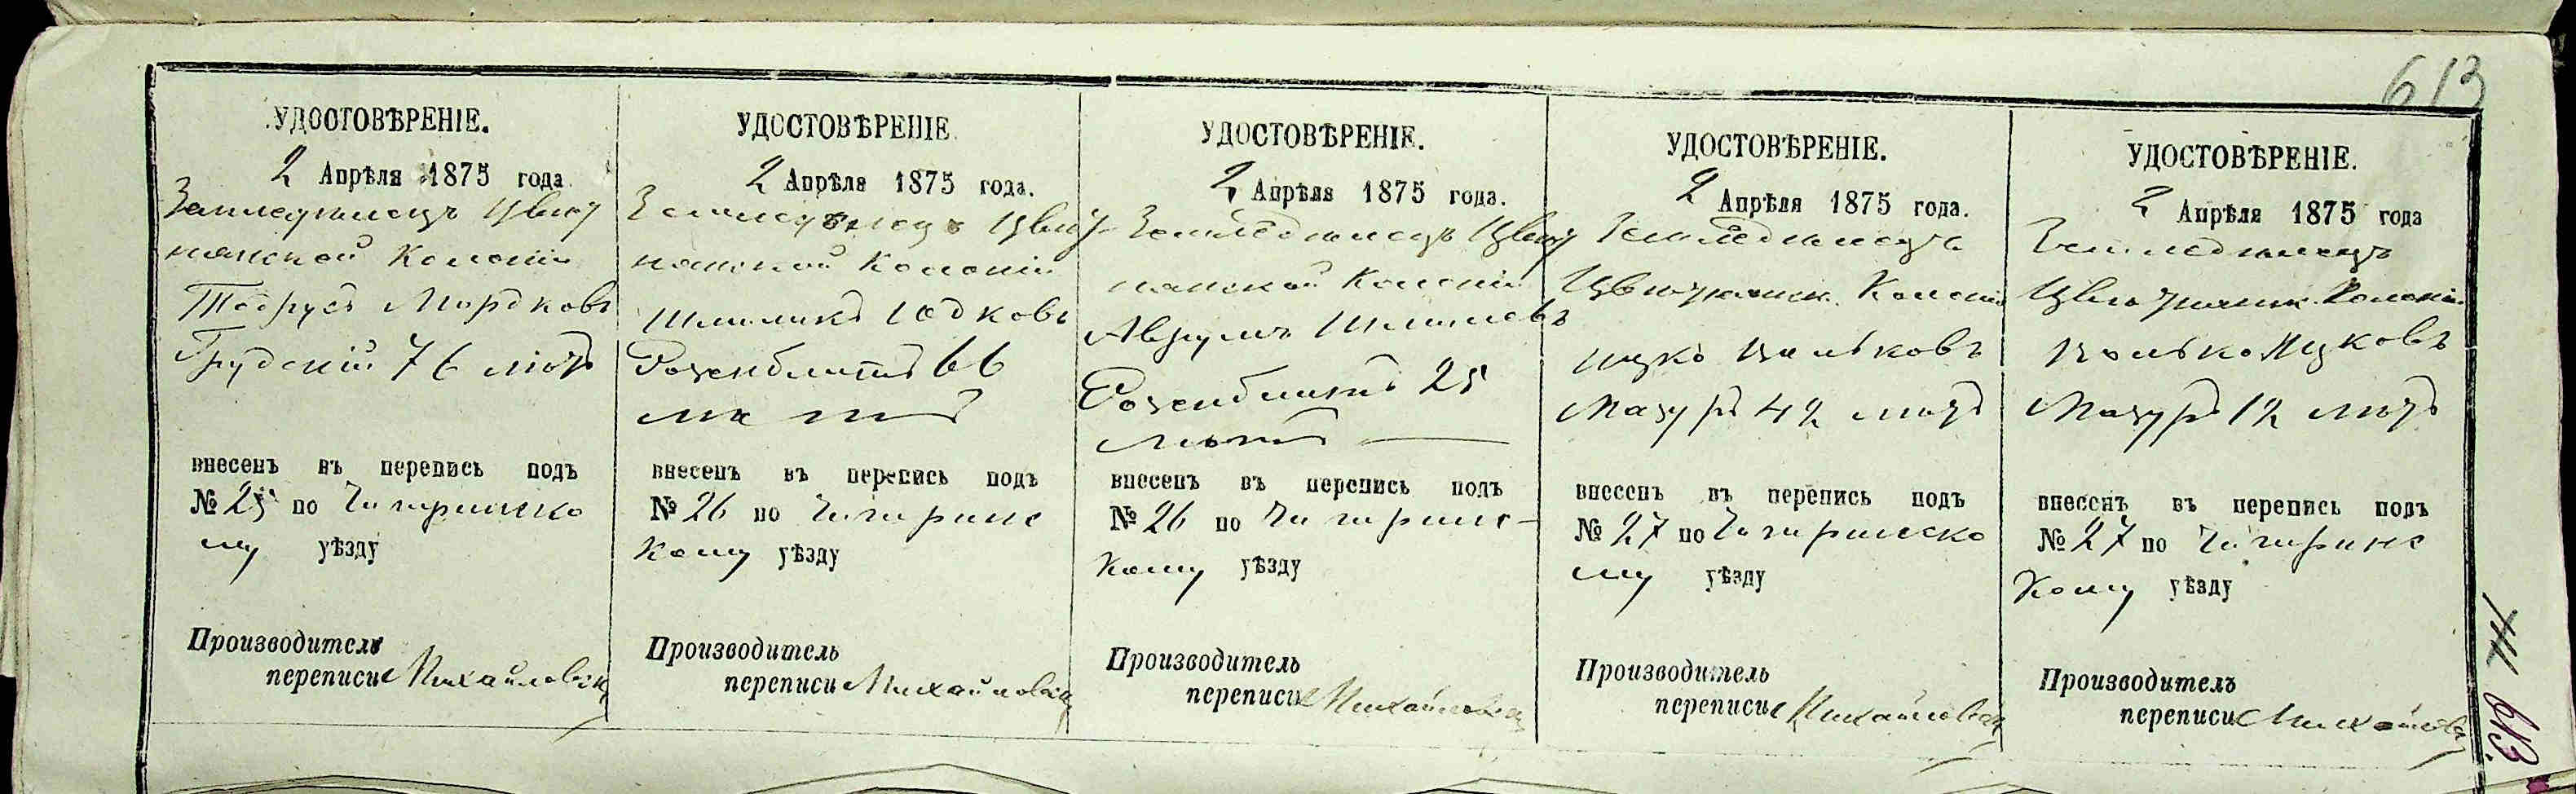 613
УДОСТОВѢРЕНІЕ.
2 Апрѣля 1875 года
Земледѣлецъ Цвит
нянской Колоніи
Тодрусъ Мордковъ
Грудскій 76 лѣтъ
внесенъ въ перепись подъ
№ 25 по Чигиринско
му уѣзду
Производитель
переписи Михайловск
УДОСТОВѢРЕНІЕ
2 Апрѣля 1875 года.
Земледѣлецъ
нянской Колоніи
Шмиликъ Юдковъ
Розенблитъ 66
лѣтъ
внесенъ въ перепись подъ
№ 26 по Чигиринс
кому уѣзду
Производитель
переписи Михайловск
УДОСТОВѢРЕНІЕ.
2 Апрѣля 1875 года.
Земледѣлецъ
нянской Колоніи
Аврумъ Шмилевъ
Розенблитъ 25
лѣтъ
внесенъ въ перепись подъ
№ 26 по Чигиринс-
кому уѣзду
Производитель
переписи Михайловск
УДОСТОВѢРЕНІЕ.
2 Апрѣля 1875 года.
Земледѣлецъ
Колоніи
Ицко Цальковъ
Мазуръ 42 лѣтъ
внесенъ въ перепись подъ
№ 27 по Чигиринско
му уѣзду
Производитель
переписи Михайловск
УДОСТОВѢРЕНІЕ.
2 Апрѣля 1875 года
Земледѣлецъ
Колоніи
Цалько Ицковъ
Мазуръ 12 лѣтъ
внесенъ въ перепись подъ
№ 27 по Чигиринс
кому уѣзду
Производитель
переписи Михайлов
613.